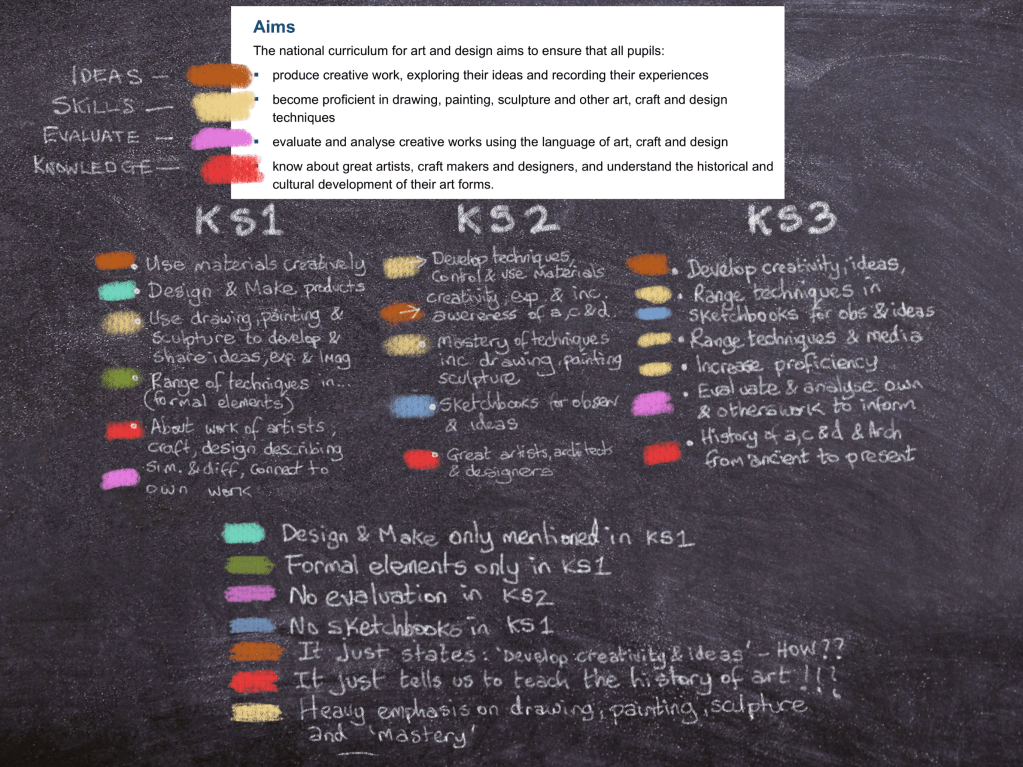 Aims
The national curriculum for art and design aims to ensure that all pupils:
▪ produce creative work, exploring their ideas and recording their experiences
▪ become proficient in drawing, painting, sculpture and other art, craft and design
techniques
▪ evaluate and analyse creative works using the language of art, craft and design
▪ know about great artists, craft makers and designers, and understand the historical and
cultural development of their art forms.
IDEAS —
SKILLS —
EVALUATE —
KNOWLEDGE —
KS1
Use materials creatively
Design & Make products
Use drawing, painting &
Sculpture to develop &
share ideas, exp & Imag
Range of techniques in...
(formal elements)
About work of artists,
craft, design describing
Sim. & diff, connect to
own work
KS2
Develop techniques,
Control & use Materials
creativity, exp. & inc.
awareness of a,c&d.
Mastery of techniques
inc drawing, painting
sculpture
Sketchbooks for observ
& ideas
Great artists, architects
& designers
KS3
Develop creativity, ideas,
Range techniques in
sketchbooks for obs & ideas
Range techniques & media
Increase proficiency
Evaluate & analyse own
& others work to inform
History of a,c & d & Arch
from ancient to present
Design & Make only mentioned in KS1
Formal elements only in KS1
No evaluation in KS2
No sketchbooks in KS1
It just states: 'Develop creativity & ideas' – HOW??
It just tells us to teach the history of art !!!?
Heavy emphasis on drawing, painting, sculpture
and 'mastery'